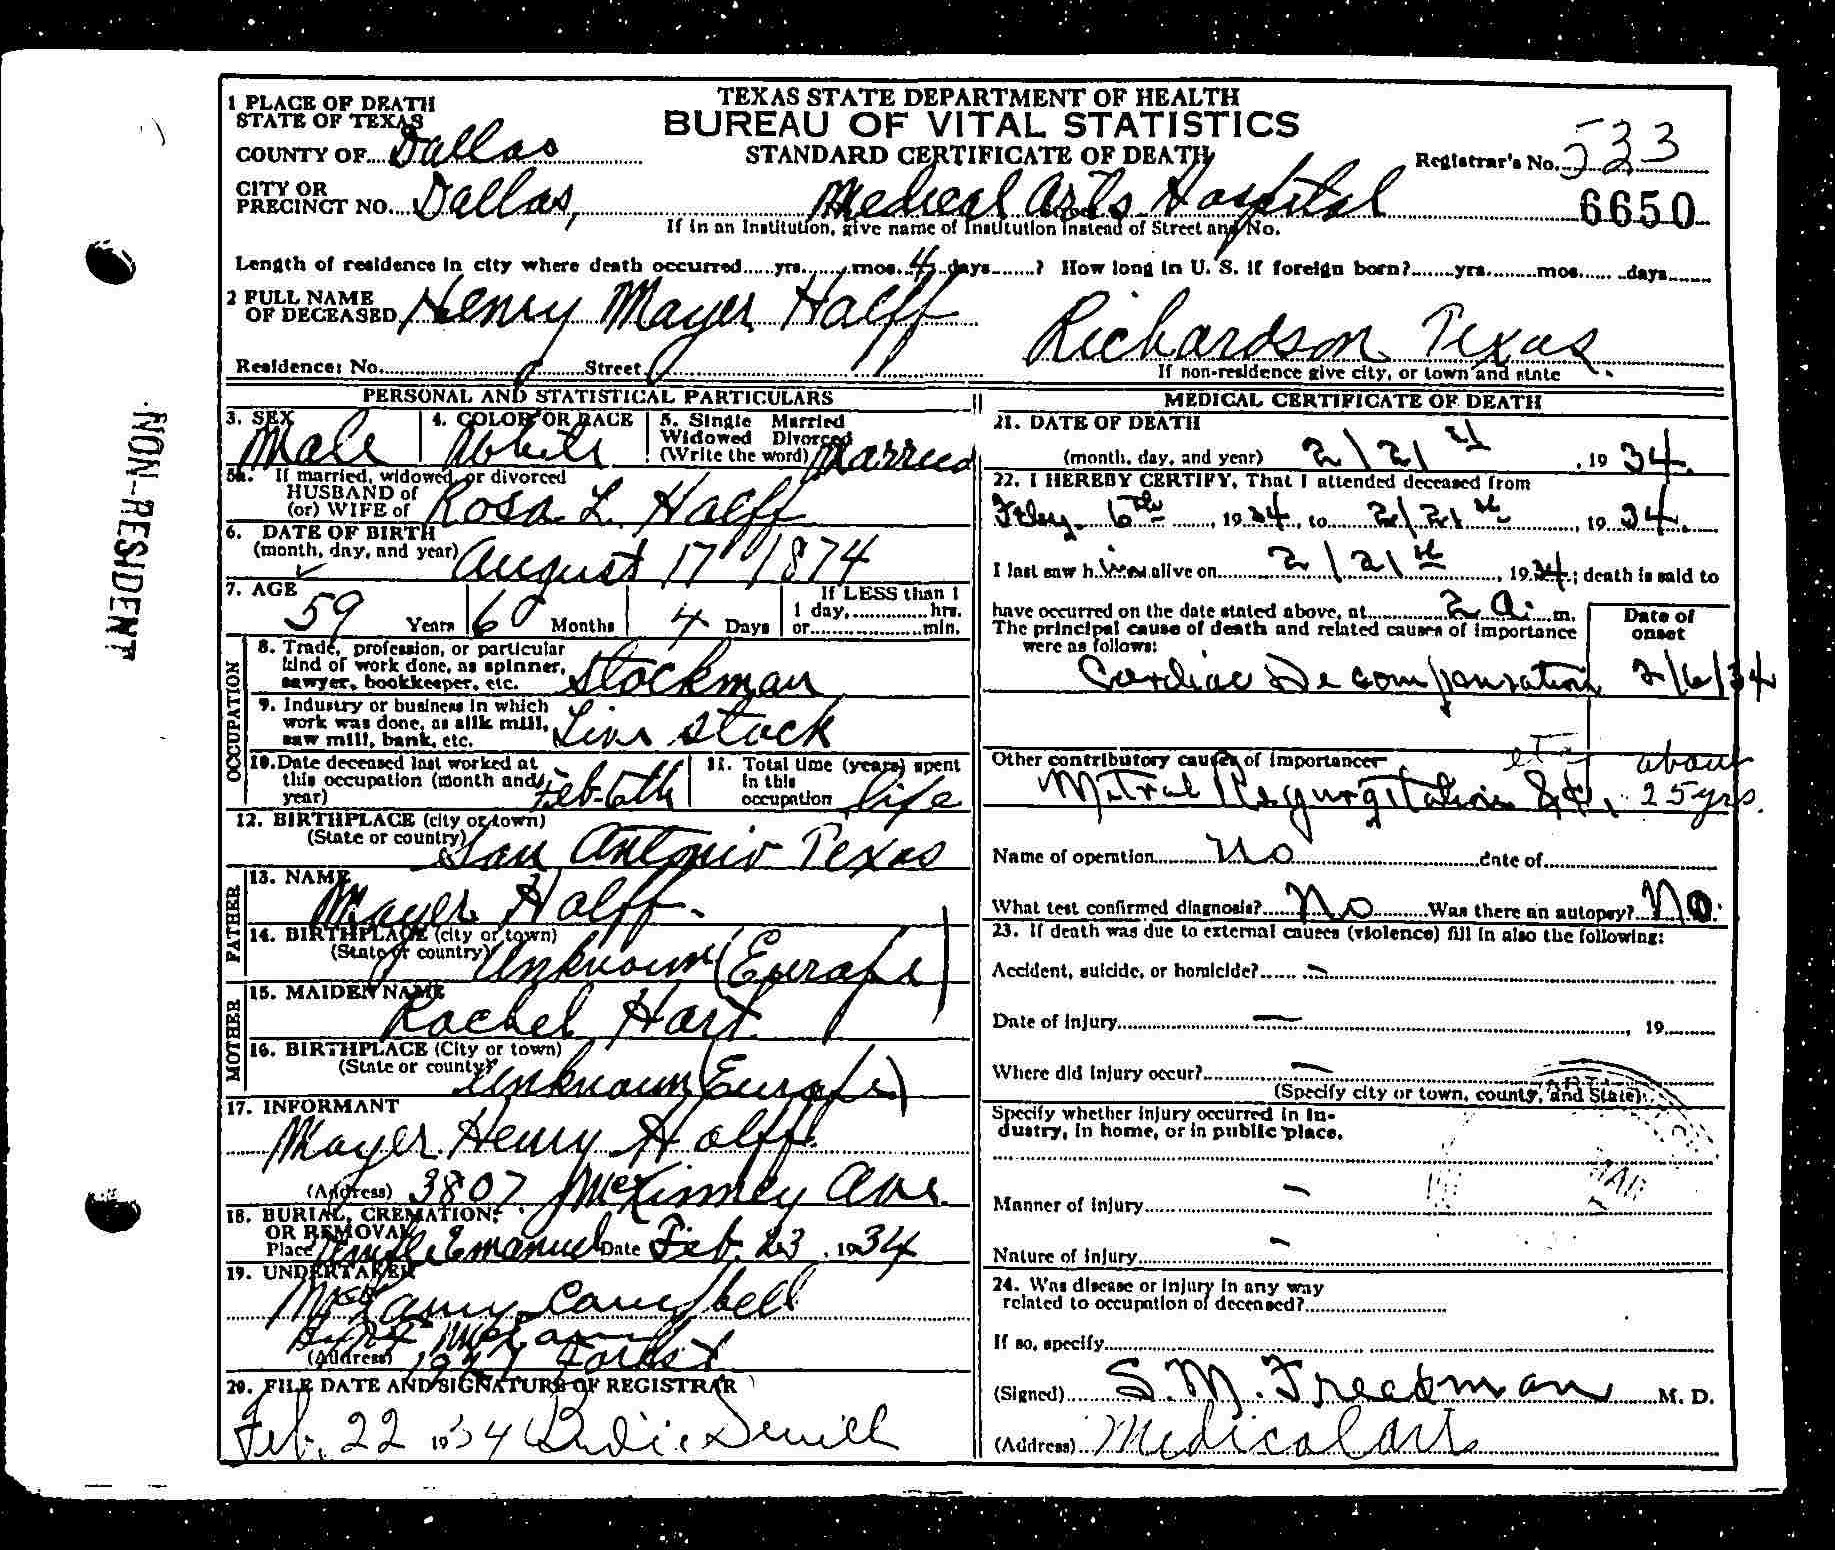 TEXAS STATE DEPARTMENT OF HEALTH
BUREAU OF VITAL STATISTICS
STANDARD CERTIFICATE OF DEATH
1 PLACE OF DEATH
STATE OF TEXAS
COUNTY OF Dallas
Registrar's No. 533
CITY OR
PRECINCT NO. Dallas, Medical Arts Hospital
6650
If in an Institution, give name of Institution instead of Street and No.
Length of residence in city where death occurred yrs. mos. 4 days ? How long in U. S. if foreign born? yrs. mos. days
2 FULL NAME
OF DECEASED Henry Mayer Halff
Richardson Texas
Residence: No. Street
If non-residence give city, or town and state
NON-RESIDENT
PERSONAL AND STATISTICAL PARTICULARS
3. SEX Male
4. COLOR OR RACE White
5. Single Married
Widowed Divorced
(Write the word) Married
5a. If married, widowed, or divorced
HUSBAND of
(or) WIFE of Rosa L. Halff
6. DATE OF BIRTH
(month, day, and year) August 17 1874
7. AGE
59 Years 6 Months 4 Days
If LESS than 1
1 day, hrs.
or min.
OCCUPATION
8. Trade, profession, or particular
kind of work done, as spinner,
sawyer, bookkeeper, etc. Stockman
9. Industry or business in which
work was done, as silk mill,
saw mill, bank, etc. Live stock
10. Date deceased last worked at
this occupation (month and
year) Feb-6th
11. Total time (years) spent
in this
occupation life
12. BIRTHPLACE (city or town)
(State or country) San Antonio Texas
FATHER
13. NAME
Mayer Halff.
14. BIRTHPLACE (city or town)
(State or country) Unknown (Europe)
MOTHER
15. MAIDEN NAME
Rachel Hart
16. BIRTHPLACE (City or town)
(State or country) Unknown (Europe)
17. INFORMANT
Mayer Henry Halff.
(Address) 3807 McKinney Ave.
18. BURIAL, CREMATION,
OR REMOVAL
Place Temple Emanuel Date Feb. 23, 1934
19. UNDERTAKER
McLamy Campbell
(Address) 1921 Forest
20. FILE DATE AND SIGNATURE OF REGISTRAR
Feb. 22 1934
MEDICAL CERTIFICATE OF DEATH
21. DATE OF DEATH
(month, day, and year) 2/21st, 19 34.
22. I HEREBY CERTIFY, That I attended deceased from
Feby. 6th, 19 34, to 2/21st, 19 34.
I last saw him alive on 2/21st, 19 34; death is said to
have occurred on the date stated above, at 2 a. m.
The principal cause of death and related causes of importance
were as follows:
Date of
onset
Cardiac Decompensation 2/6/34
Other contributory causes of importance:
Mitral Regurgitation &c, about
25 yrs.
Name of operation No date of
What test confirmed diagnosis? No Was there an autopsy? No.
23. If death was due to external causes (violence) fill in also the following:
Accident, suicide, or homicide? –
Date of injury –, 19
Where did injury occur? –
(Specify city or town, county, and State)
Specify whether injury occurred in in-
dustry, in home, or in public place.
Manner of injury –
Nature of injury –
24. Was disease or injury in any way
related to occupation of deceased?
If so, specify
(Signed) S. M. Freedman M. D.
(Address) Medical Arts